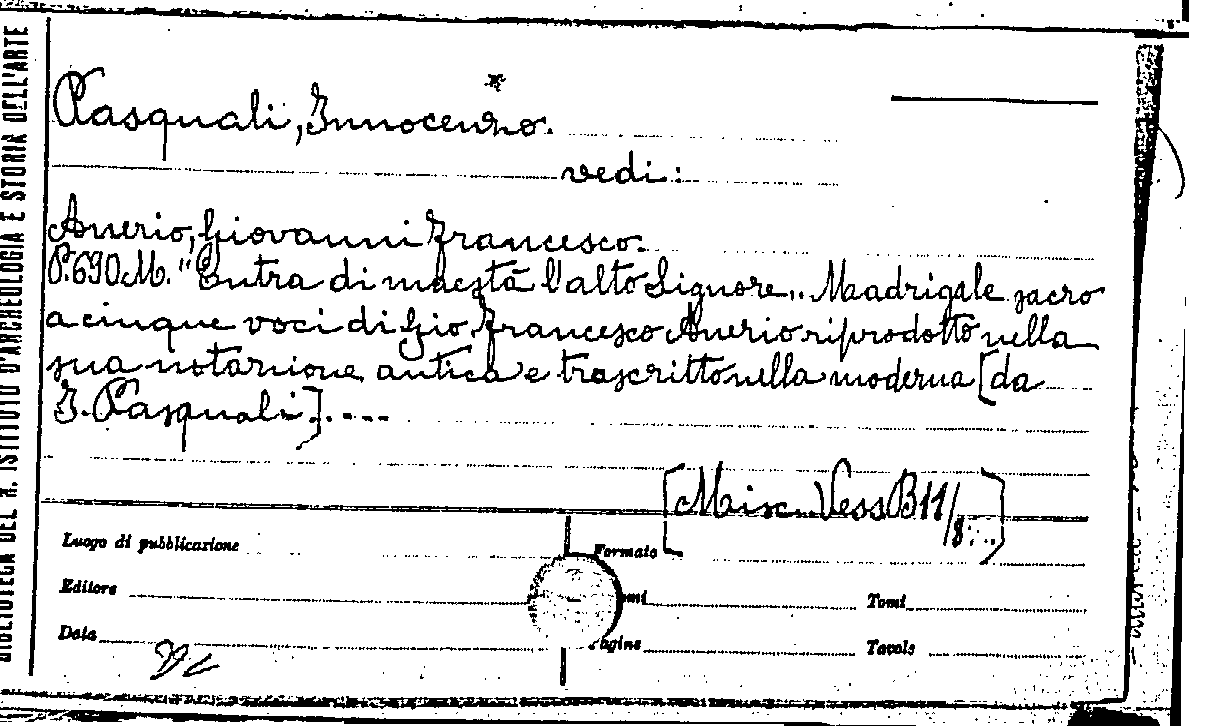 BIBLIOTECA DEL R. ISTITUTO D'ARCHEOLOGIA E STORIA DELL'ARTE
*
Pasquali, Innocenzo.
vedi:
Anerio, Giovanni Francesco.
P.690M. "Entra di maestà l'alto Signore„. Madrigale sacro
a cinque voci di Gio. Francesco Anerio riprodotto nella
sua notazione antica e trascritto nella moderna [da
I. Pasquali]....
[Misc. Vess B11/8...]
Luogo di pubblicazione
Formato
Editore
Tomi
Data
Pagine
Tavole